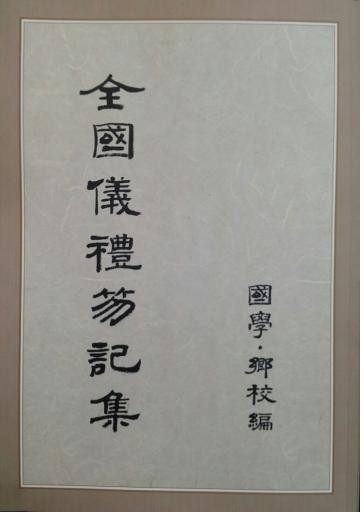 全國儀禮笏記集
國學·鄉校編